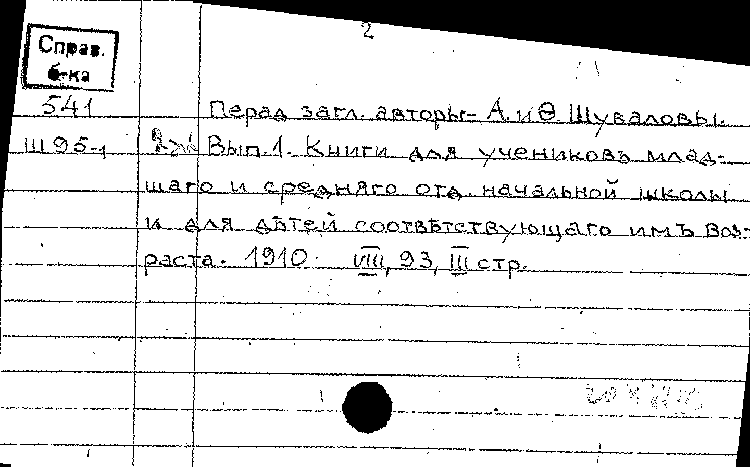 2
Справ.
б-ка
541
Ш95-1
Перед загл. авторы- А. и Ѳ. Шуваловы.
Вып.1. Книги для учениковъ млад-
шаго и средняго отд. начальной школы
и для дѣтей соотвѣтствующаго имъ воз-
раста. 1910. VIII, 93, III стр.